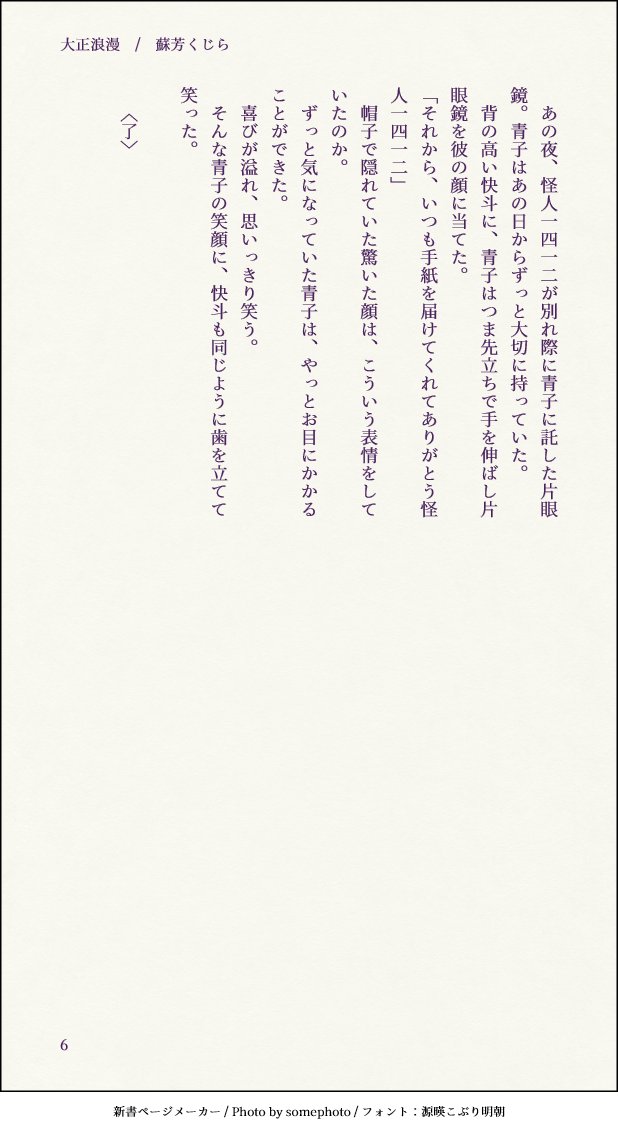 大正浪漫　/　蘇芳くじら
　あの夜、怪人一四一二が別れ際に青子に託した片眼
鏡。青子はあの日からずっと大切に持っていた。
　背の高い快斗に、青子はつま先立ちで手を伸ばし片
眼鏡を彼の顔に当てた。
「それから、いつも手紙を届けてくれてありがとう怪
人一四一二」
　帽子で隠れていた驚いた顔は、こういう表情をして
いたのか。
　ずっと気になっていた青子は、やっとお目にかかる
ことができた。
　喜びが溢れ、思いっきり笑う。
　そんな青子の笑顔に、快斗も同じように歯を立てて
笑った。
〈了〉
6
新書ページメーカー / Photo by somephoto / フォント：源暎こぶり明朝